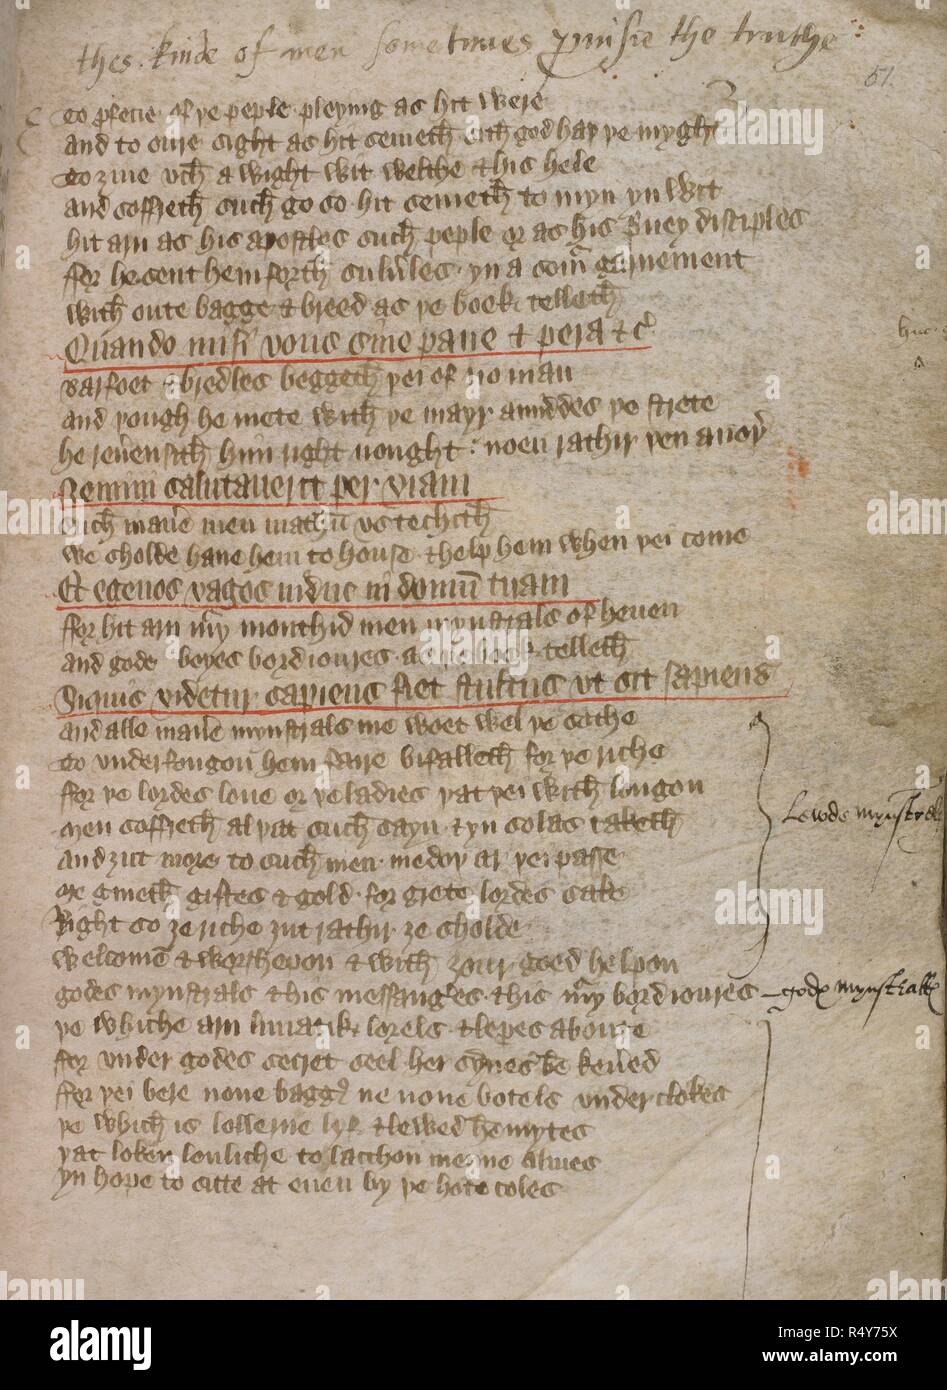 thes kinde of men sometimes prinsie the truthe
51
to pfecie of þe peple pleying as hit were
and to oure sight as hit semeth sith god haþ þe myght
to ȝiue vch a wight wit welthe & his hele
and soffreth such go so hit semeth to myn yn wit
hit arn as his apostles such peple or as his priuey disciples
ffor he sent hem forth siluerles yn a somer garnement
with oute bagge & breed as þe book telleth
Quando misi vous sine pane & pera &c
barfoet & bredles beggeth þei of no man
and þough he mete with þe mayr amiddes þe strete
he reuerensith him right nought noen rathir þen anoþer
Nemini salutaueritis per viam
such maner men mathu vs techith
we sholde haue hem to house & help hem when þei come
Et egenos vagos induc in domum tuam
ffor hit arn mery monthid men mynstrals of heuen
and godes boyes bordioures as þe book telleth
Siquis videtur sapiens fiet stultus vt sit sapiens
and alle maner mynstrals me woet wel þe sothe
to vnderfongon hem faire bifalleth for þe riche
ffor þe lordes loue or þe ladies þat þei with longon
men soffreth al þat such sayn & yn solas taketh
and ȝut more to such men me doþ ar þei passe
me gineth giftes & gold for grete lordes sake
Right so ȝe riche ȝut rathir ȝe sholde
welcome & worthepon & with ȝour goed helpon
godes mynstrals & his messangeres & his mery bordioures
þe whiche arn lunatik lorels & lepes aboute
for vnder godes secret seel her synes be keuered
ffor þei bere none bagges ne none botels vnder clokes
þe which is lollerne lyf & lewed hermytes
þat loken louliche to lacchon menne almes
yn hope to sitte at euen by þe hote coles
Lewde mynstrels
gods mynstralls
alamy
Image ID: R4Y75X
www.alamy.com